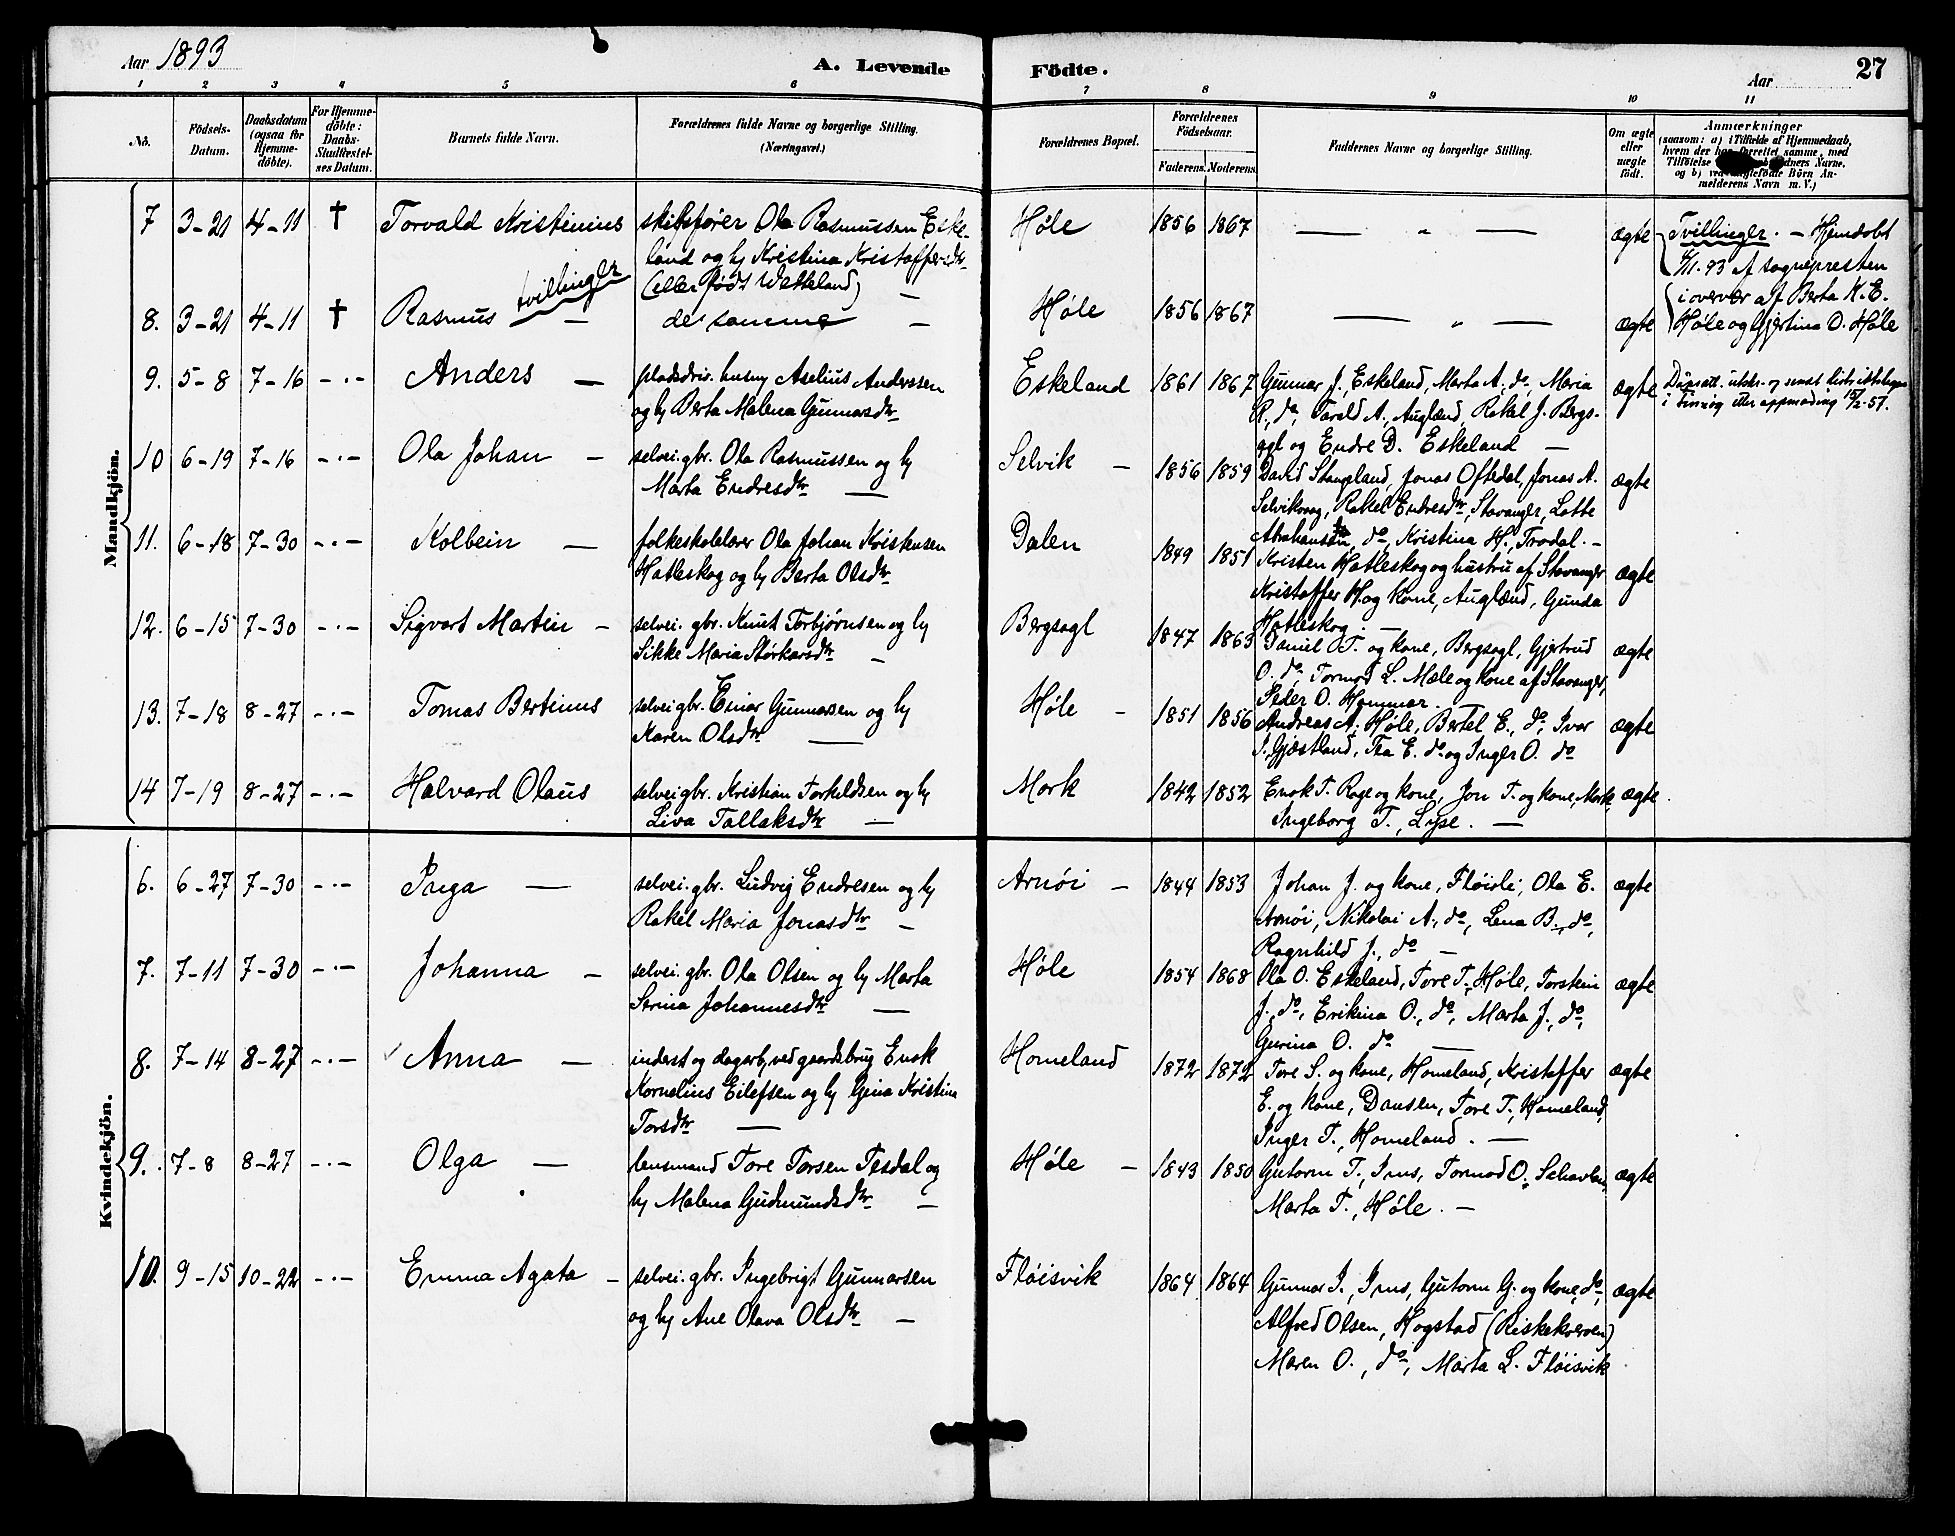 Aar 1893
A. Levende
Födte.
Aar
27
1 2 3 4 5 6 7 8 9 10 11
No.
Födsels-Datum.
Daabsdatum (ogsaa for Hjemme-döbte).
For Hjemme-döbte: Daabs-Stadfæstel-ses Datum.
Barnets fulde Navn.
Forældrenes fulde Navne og borgerlige Stilling.
(Næringsvei.)
Forældrenes Bopæl.
Forældrenes Födselsaar.
Faderens. Moderens.
Faddernes Navne og borgerlige Stilling.
Om ægte eller uægte födt.
Anmærkninger
(saasom: a) i Tilfælde af Hjemmedaab,
hvem der har forrettet samme, med
Tilföielse
og b) ved uægtefödte Börn An-
melderens Navn m. V.)
Mandkjön.
7 3-21 4-11 † Torvald Kristinius
skibsfører Ola Rasmussen Eske-
land og h Kristina Kristoffersdtr
(eller født Vetteland) –
Høle 1856 1867 — „ — ægte
Tvillinger. – Hjemdøbt
af sognepresten
tvillinger
8. 3-21 4-11 † Rasmus – de samme –
Høle 1856 1867 — „ — ægte
i overvær af Berta K. E.
Høle og Gjertina O. Høle
9. 5-8 7-16 -.- Anders –
pladsdriv. husm Aselius Anderssen
og h Berta Malena Gunnarsdtr
Eskeland 1861 1867
Gunnar J. Eskeland, Marta A. do, Maria
R., do, Tarald A., Auglænd, Rakel J. Bergs-
agl og Endre D. Eskeland –
ægte
10 6-19 7-16 -.- Ola Johan –
selvei. gbr. Ola Rasmussen og h
Marta Endresdtr –
Selvik – 1856 1859
David Stangeland, Jonas Oftedal, Jonas A.
Selvikvag, Rakel Endresdtr, Stavanger, Lotte
Abrahamsen, do, Kristina H., Trodal. –
ægte
11. 6-18 7-30 -.- Kolbein –
folkeskolelærer Ola Johan Kristensen
Hatleskog og h Berta Olsdtr
Dalen 1849 1851
Kristen Hatleskog og hustru af Stavanger
Kristoffer H. og kone, Auglænd, Gunda
Hatleskog. –
ægte
12. 6-15 7-30 -.- Sigvart Martin –
selvei. gbr. Knut Torbjørnsen og h
Sikke Maria Størkarsdtr –
Bergsagl 1847 1863
Daniel T. og kone, Bergsagl, Gjertrud
O. do, Tormod L. Mæle og kone af Stavanger,
Peder O. Hommar.
ægte
13. 7-18 8-27 -.- Tomas Bertinus
selvei gbr. Einar Gunnarsen og h
Karen Olsdtr —
Høle – 1851 1856
Andreas A. Høle, Bertel E., do, Ivar
I. Gjøstland, Tea E. do og Inger O. do
ægte
14 7-19 8-27 -.- Halvard Olaus
selvei gbr. Kristian Torkeldsen og h
Liva Tallaksdtr –
Mork 1842 1852
Enok T. Rage og kone, Jon T. og kone, Mork,
Ingeborg T., Lyse. –
ægte
Kvindekjön.
6. 6-27 7-30 -.- Inga –
selvei. gbr. Ludvig Endresen og h
Rakel Maria Jonasdtr –
Arnøi – 1844 1853
Johan J. og kone, Fløirli, Ola E.
Arnøi, Nikolai A., do, Lena B., do,
Ragnhild J., do –
ægte
7. 7-11 7-30 -.- Johanna –
selvei. gbr. Ola Olsen og h Marta
Serina Johannesdtr –
Høle 1854 1868
Ola O. Eskeland, Tore T. Høle, Torstein
J., do, Erikina O., do, Marta J., do,
Gurina O. do –
ægte
8. 7-14 8-27 -.- Anna –
inderst og dagarb. ved gaardsbrug Enok
Kornelius Eilefsen og h Gina Kristina
Torsdtr –
Homeland 1872 1872
Tore S. og kone, Homeland, Kristoffer
E. og kone, Dansen, Tore T., Homeland,
Inger T., Homeland. –
ægte
9. 7-8 8-27 -.- Olga –
lensmand Tore Torsen Tesdal og
h Malena Gudmundsdtr –
Høle – 1843 1850
Gutorm T., Ims, Tormod O.
Marta T., Høle. –
ægte
10. 9-15 10-22 -.- Emma Agata –
selvei. gbr. Ingebrigt Gunnarsen
og h Ane Olava Olsdtr –
Fløisvik 1864 1864
Gunnar I., Ims, Gutorm G. og kone, do,
Alfred Olsen, Hogstad (Riskekverven)
Maren O., do, Marta L. Fløisvik
ægte